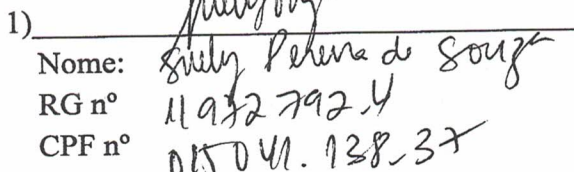 1)
Nome: Suely Pereira de Souza
RG nº 11972792-4
CPF nº 015041.138-37